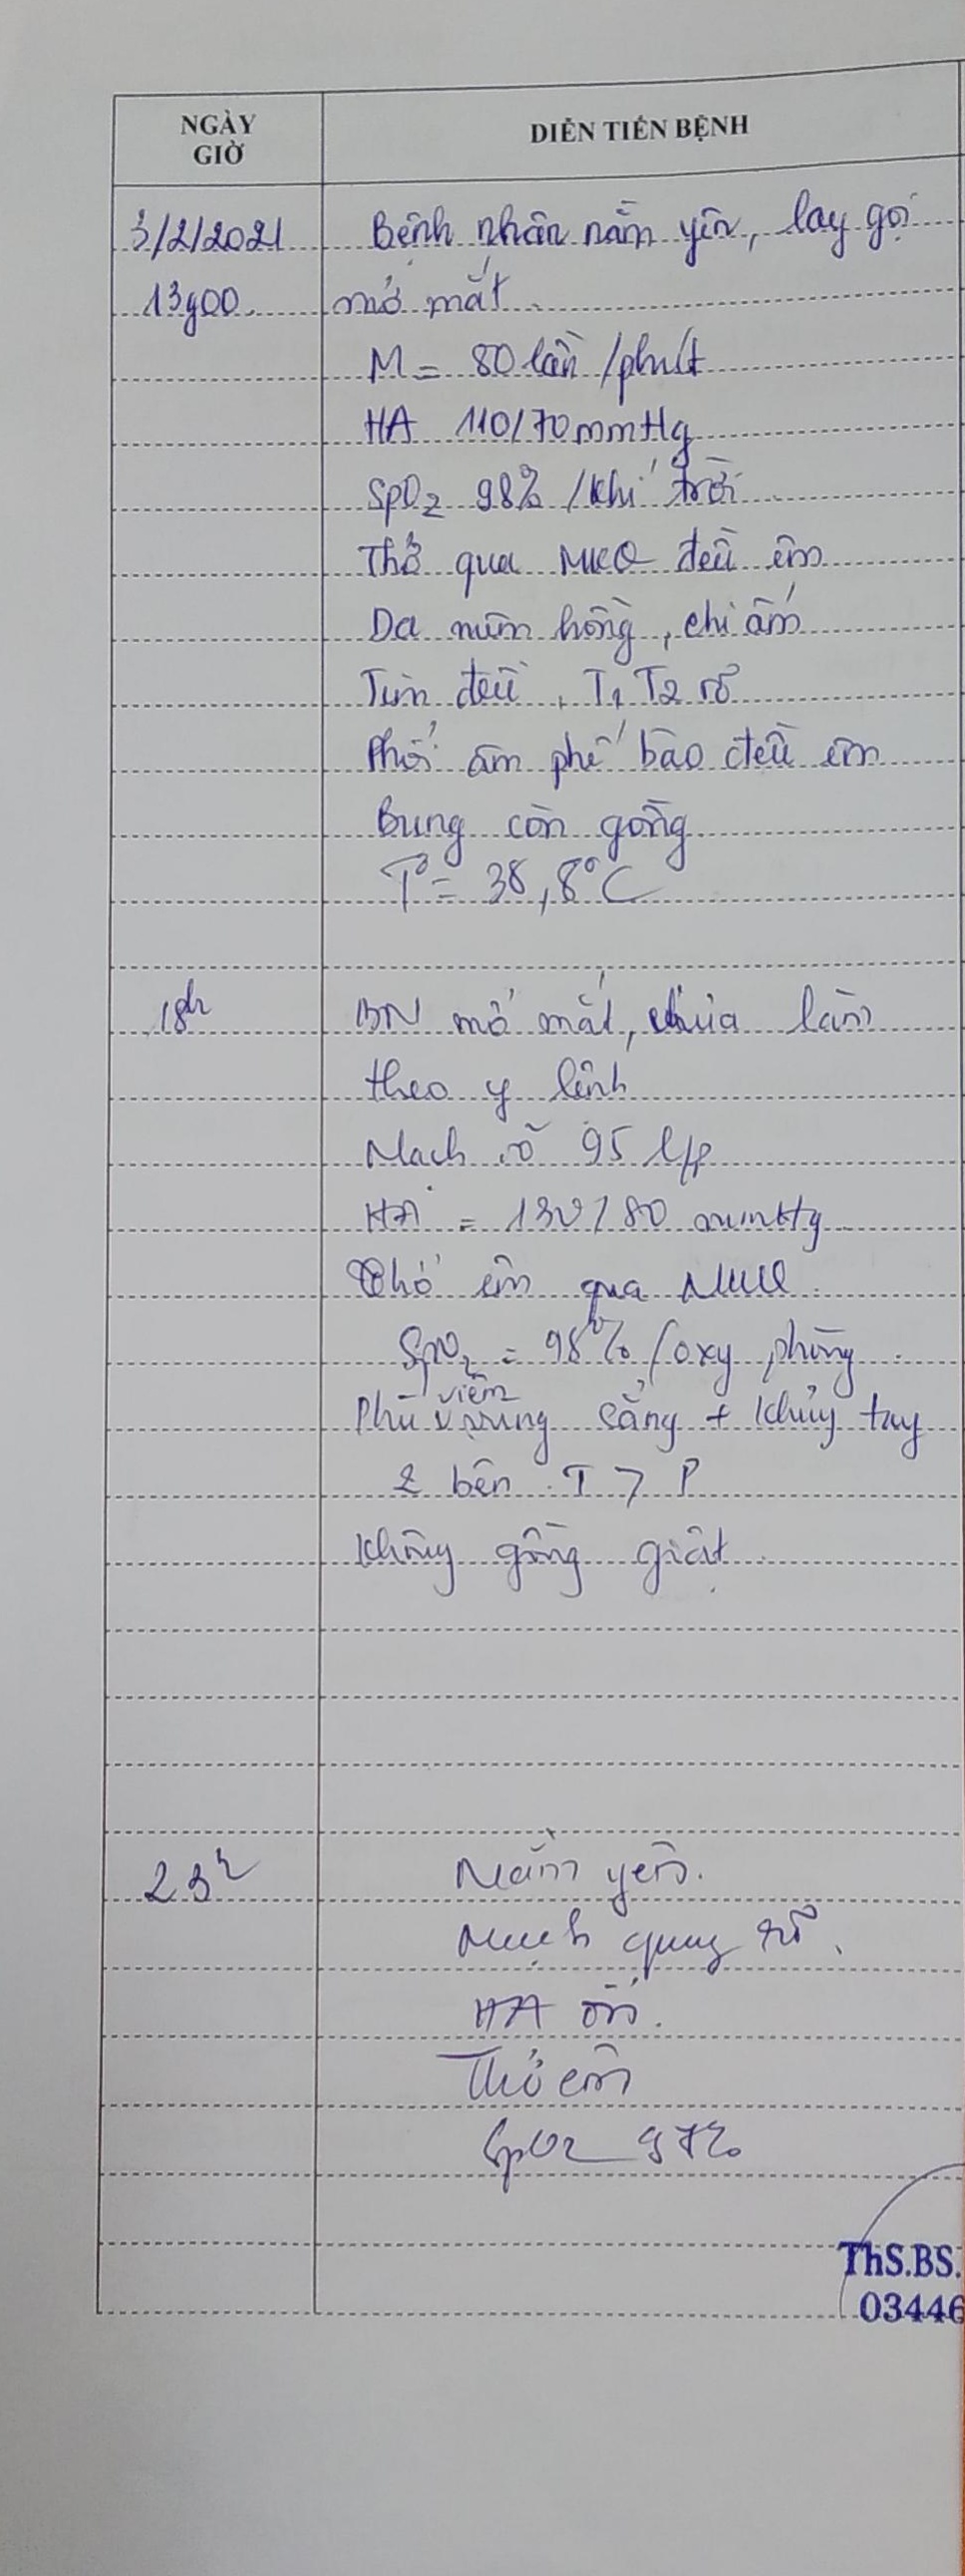 NGÀY
GIỜ
DIỄN TIẾN BỆNH
3/2/2021 Bệnh nhân nằm yên, lay gọi
13g00 mở mắt
M = 80 lần /phút
HA 110/70mmHg
SpO2 98% /khí trời
Thở qua MKQ đều êm
Da niêm hồng, chi ấm
Tim đều, T1 T2 rõ
Phổi âm phế bào đều êm
Bụng còn gồng
T° = 38,8°C
18h BN mở mắt, chưa làm
theo y lệnh
Mạch rõ 95 l/p
HA = 130/80 mmHg
Thở êm qua MKQ
SpO2 = 98% /oxy phòng
viêm
Phù vùng cẳng + khủy tay
2 bên T > P
Không gồng giật
23h Nằm yên.
Mạch quay rõ.
HA ổn.
Thở êm
SpO2 97%
ThS.BS.
03446